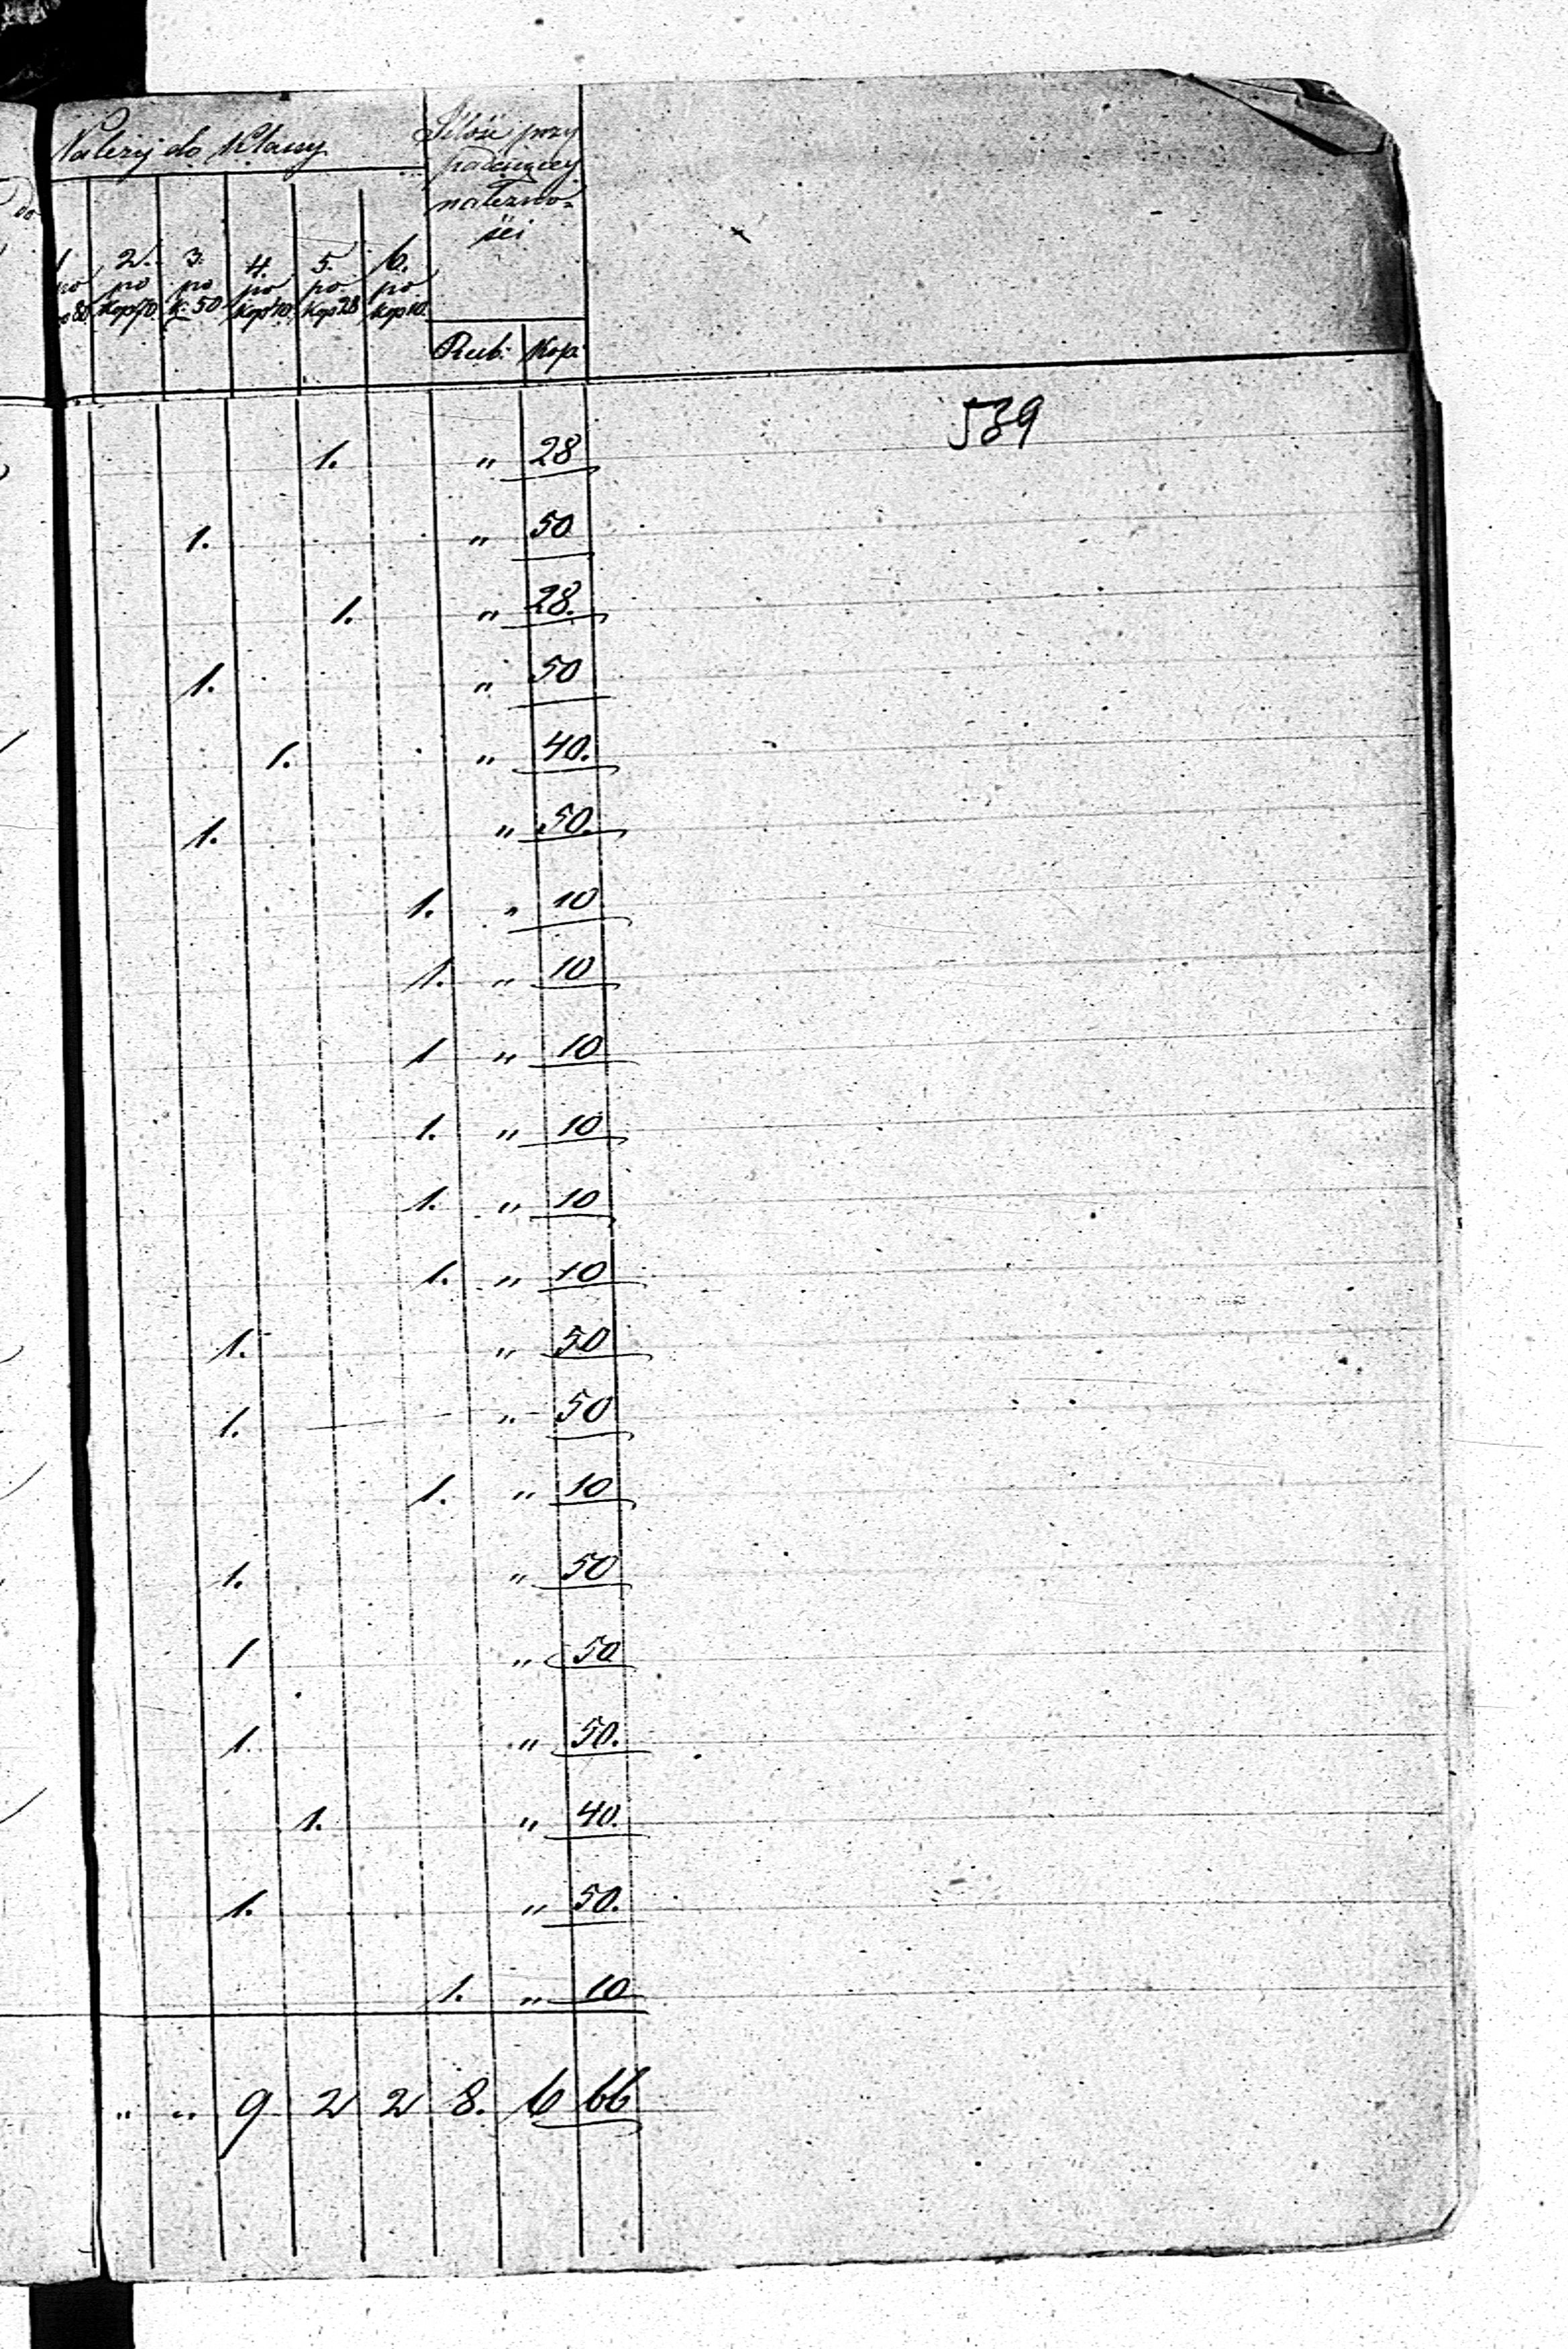 Należy do Klassy
Ilość przy
padaiącey
należno-
ści
do
1. 2. 3. 4. 5. 6.
po po po po po po
80 Kop 70 K. 50 Kop 40 Kop 28 Kop 10
Rub: Kop:
539
1. " 28
1. " 50
1. " 28.
1. " 50
1. " 40.
1. " 50.
1. " 10
1. " 10
1 " 10
1. " 10
1. " 10
1. " 10
1. " 50
1. " 50
1. " 10
1. " 50
1 " 50
1. " 50.
1. " 40.
1. " 50.
1. " 10
" " 9 2 2 8. 6 66